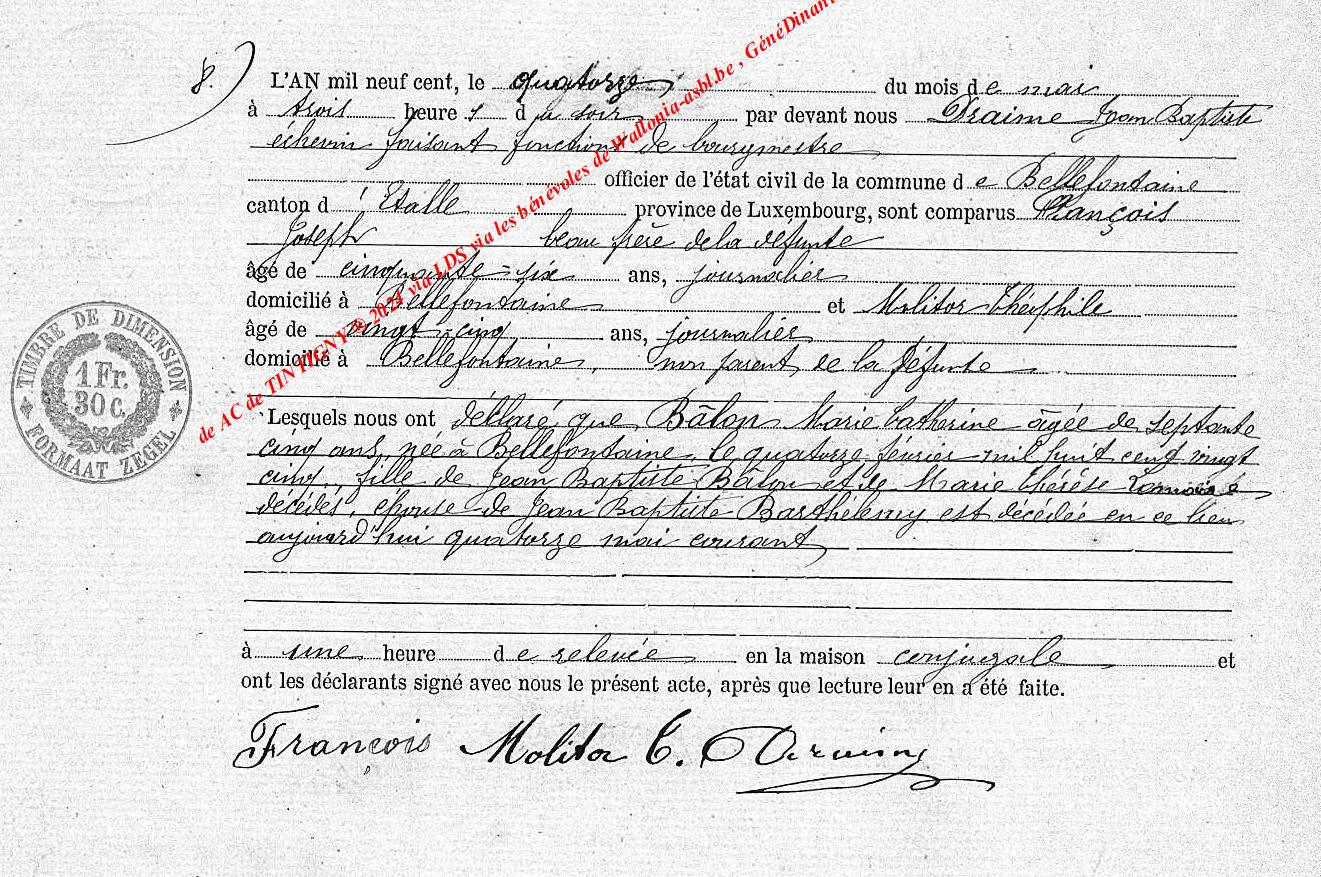 8.)
L'AN mil neuf cent, le quatorze du mois de mai
à trois heures du soir par devant nous Draime Jean Baptiste
échevin faisant fonctions de bourgmestre
officier de l'état civil de la commune de Bellefontaine
canton d'Etalle province de Luxembourg, sont comparus François
Joseph beau frère de la défunte
âgé de cinquante-six ans, journalier
domicilié à Bellefontaine et Molitor Théophile
âgé de vingt-cinq ans, journalier
domicilié à Bellefontaine, non parent de la défunte
Lesquels nous ont déclaré que Bâlon Marie Catherine âgée de septante
cinq ans, née à Bellefontaine, le quatorze février mil huit cent vingt
cinq, fille de Jean Baptiste Bâlon et de Marie Thérèse
décédés, épouse de Jean Baptiste Barthélemy est décédée en ce lieu
aujourd'hui quatorze mai courant
à une heure de relevée en la maison conjugale et
ont les déclarants signé avec nous le présent acte, après que lecture leur en a été faite.
François Molitor T.
TIMBRE DE DIMENSION
1 Fr.
30 C.
FORMAAT ZEGEL
de AC de TINTIGNY @ 2024 via LDS via les bénévoles de Wallonia-asbl.be , GénéDinant